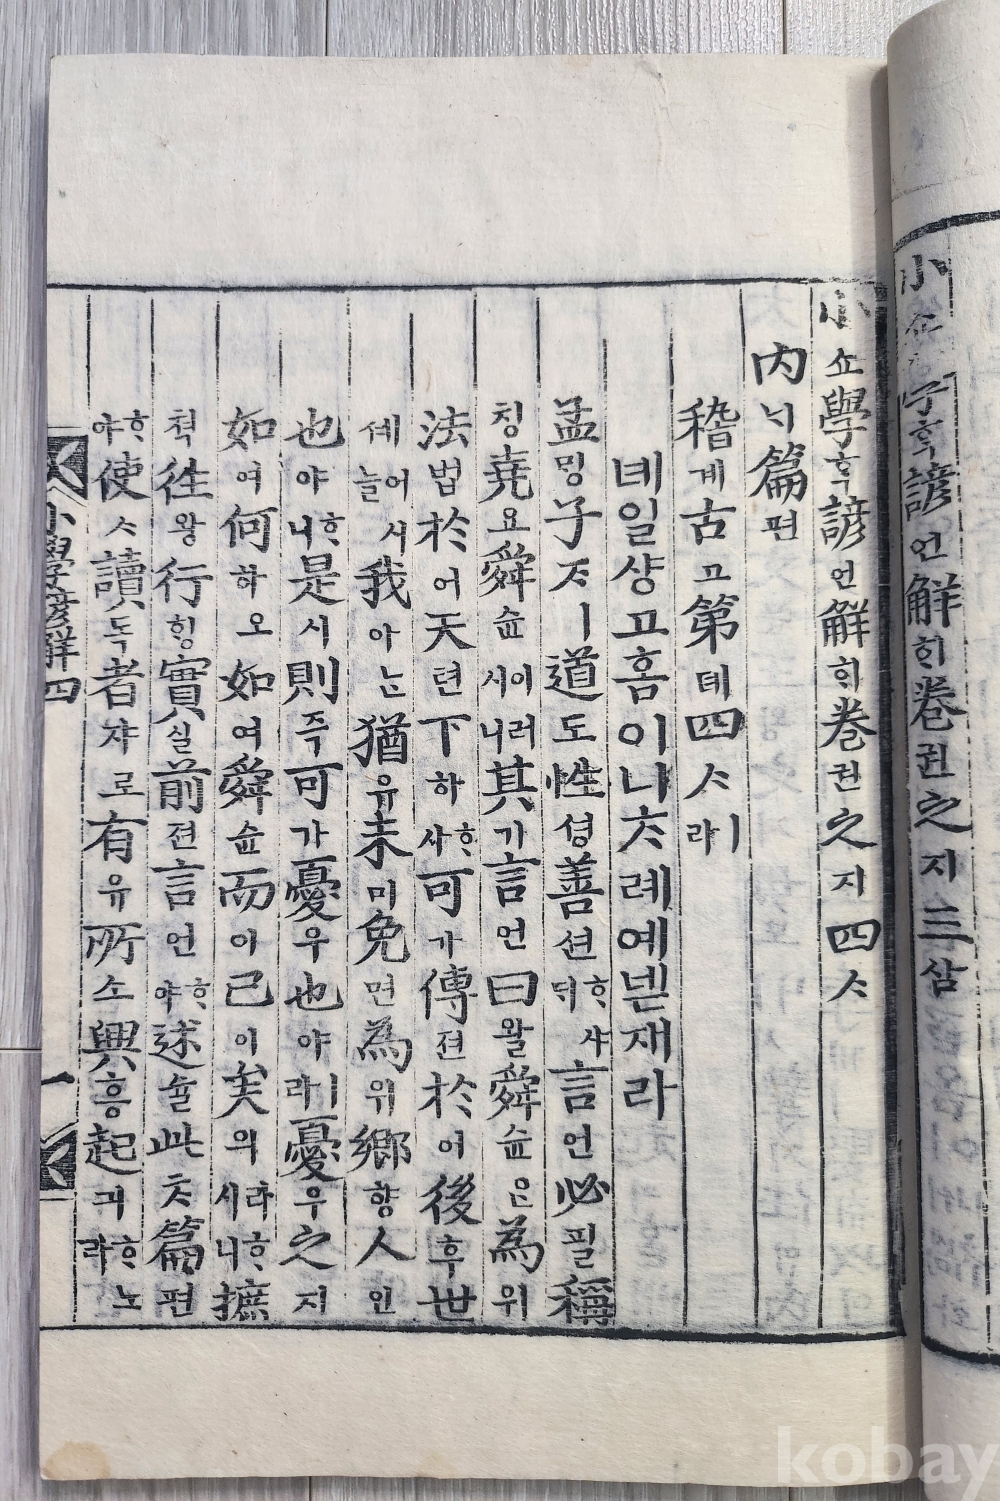 小쇼學ᄒᆞᆨ諺언解ᄒᆡ卷권之지三삼
小쇼學ᄒᆞᆨ諺언解ᄒᆡ卷권之지四ᄉᆞ
內ᄂᆡ篇편
稽계古고第뎨四ᄉᆞㅣ라
녜일샹고홈이니ᄎᆞ례예넫재라
孟ᄆᆡᆼ子ᄌᆞㅣ道도性셩善션ᄒᆞ샤ᄃᆡ言언必필稱
칭堯요舜슌이러시니其기言언曰왈舜슌은為위
法법於어天텬下하ᄒᆞ샤可가傳젼於어後후世
셰어시늘我아ᄂᆞᆫ猶유未미免면為위鄕향人인
也야ᄒᆞ니是시則즉可가憂우也야ㅣ라憂우之지
如여何하오如여舜슌而이已이矣의라ᄒᆞ시니摭
쳑徃왕行ᄒᆡᆼ實실前젼言언ᄒᆞ야述슐此ᄎᆞ篇편
ᄒᆞ야使ᄉᆞ讀독者쟈로有유所소興흥起긔ᄒᆞ노라
小學諺解四 一
kobay